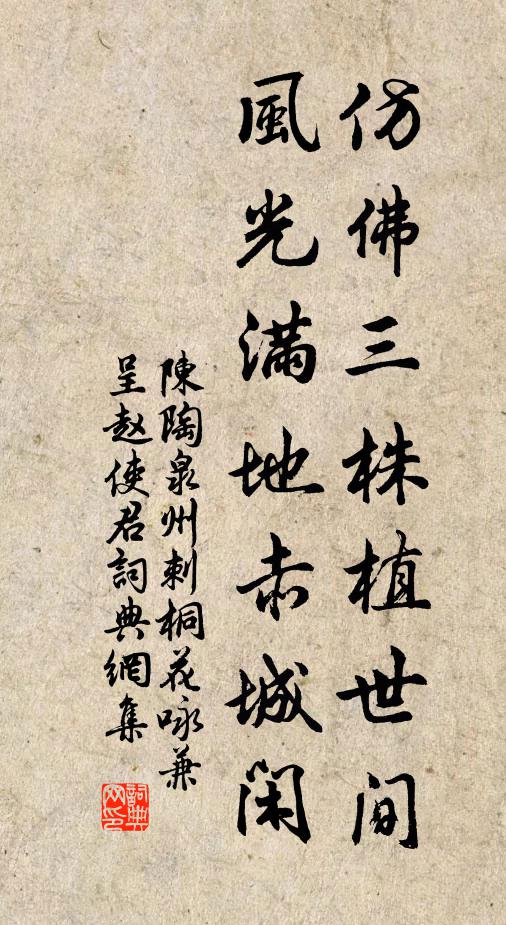 仿佛三株植世间
風光滿地赤城闲
陳陶泉州刺桐花咏兼
呈赵使君詞典網集
詞典
网印